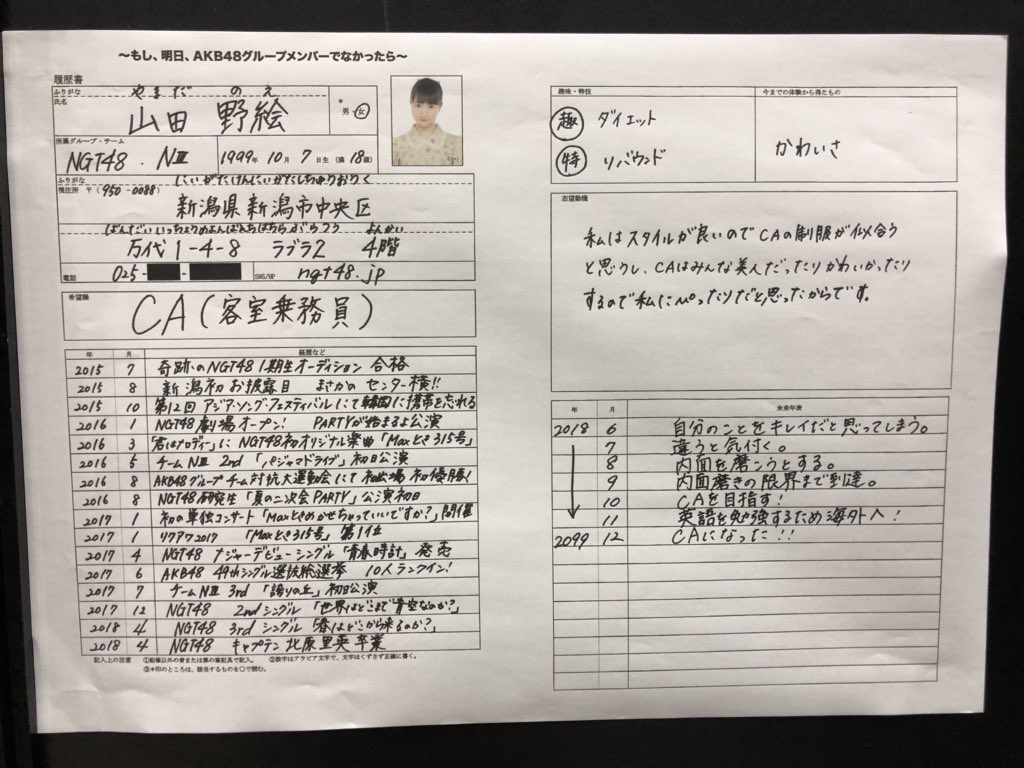 ～もし、明日、AKB48グループメンバーでなかったら～
履歴書
ふりがな やまだ のえ
氏名 山田 野絵
* 男・女
所属グループ・チーム
NGT48 . NⅢ
1999年 10月 7日生 (満 18歳)
ふりがな にいがたけんにいがたしちゅうおうく
現住所 〒(950-0088)
新潟県新潟市中央区
ばんだいいっちょうめよんばんちはちらぶらつう よんかい
万代1-4-8 ラブラ2 4階
電話 025- - SNS/HP ngt48.jp
希望職
CA(客室乗務員)
年 月 経歴など
2015 7 奇跡のNGT48 1期生オーディション 合格
2015 8 新潟初お披露目 まさかの センター横!!
2015 10 第12回 アジア・ソング・フェスティバルにて韓国に携帯を忘れる
2016 1 NGT48劇場オープン! PARTYが始まるよ公演
2016 3 「君はメロディー」に NGT48初オリジナル楽曲「Maxとき315号」
2016 5 チームNⅢ 2nd「パジャマドライブ」初日公演
2016 8 AKB48グループチーム対抗大運動会にて 初出場 初優勝!
2016 8 NGT48研究生「夏の二次会PARTY」公演初日
2017 1 初の単独コンサート「Maxときめかせちゃっていいですか?」開催
2017 1 リクアワ2017 「Maxとき315号」 第1位
2017 4 NGT48 メジャーデビューシングル「青春時計」発売
2017 6 AKB48 49thシングル選抜総選挙 10人ランクイン!
2017 7 チームNⅢ 3rd「誇りの丘」初日公演
2017 12 NGT48 2ndシングル「世界はどこまで青空なのか?」
2018 4 NGT48 3rdシングル「春はどこから来るのか?」
2018 4 NGT48 キャプテン 北原里英 卒業
記入上の注意 ①鉛筆以外の青または黒の筆記具で記入。 ②数字はアラビア文字で、文字はくずさず正確に書く。
③＊印のところは、該当するものを○で囲む。
趣味・特技 今までの体験から得たもの
趣 ダイエット
特 リバウンド
かわいさ
志望動機
私はスタイルが良いのでCAの制服が似合う
と思うし、CAはみんな美人だったりかわいかったり
するので私にぴったりだと思ったからです。
年 月 未来年表
2018 6 自分のことをキレイだと思ってしまう。
7 違うと気付く。
8 内面を磨こうとする。
9 内面磨きの限界まで到達。
10 CAを目指す!
11 英語を勉強するため海外へ!
2099 12 CAになった!!